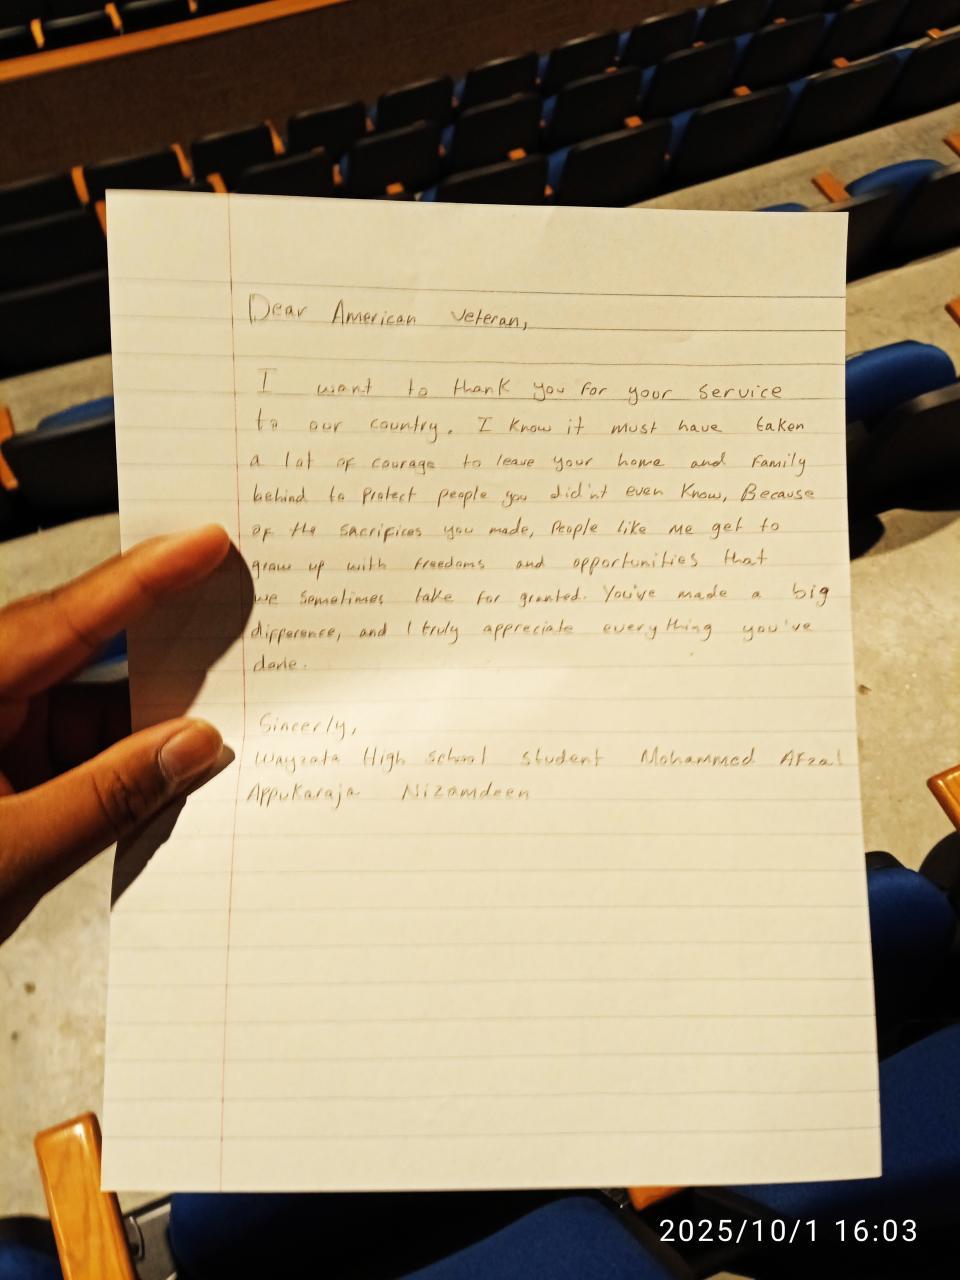 Dear American Veteran,
I want to thank you for your service
to our country. I Know it must have taken
a lot of courage to leave your home and Family
behind to Protect people you did'nt even Know, Because
of the sacrifices you made, People like me get to
grow up with freedoms and opportunities that
we sometimes take for granted. You've made a big
difference, and I truly appreciate everything you've
done.
Sincerly,
Wayzata High school student Mohammed Afzal
Appukaraja Nizamdeen
2025/10/1 16:03